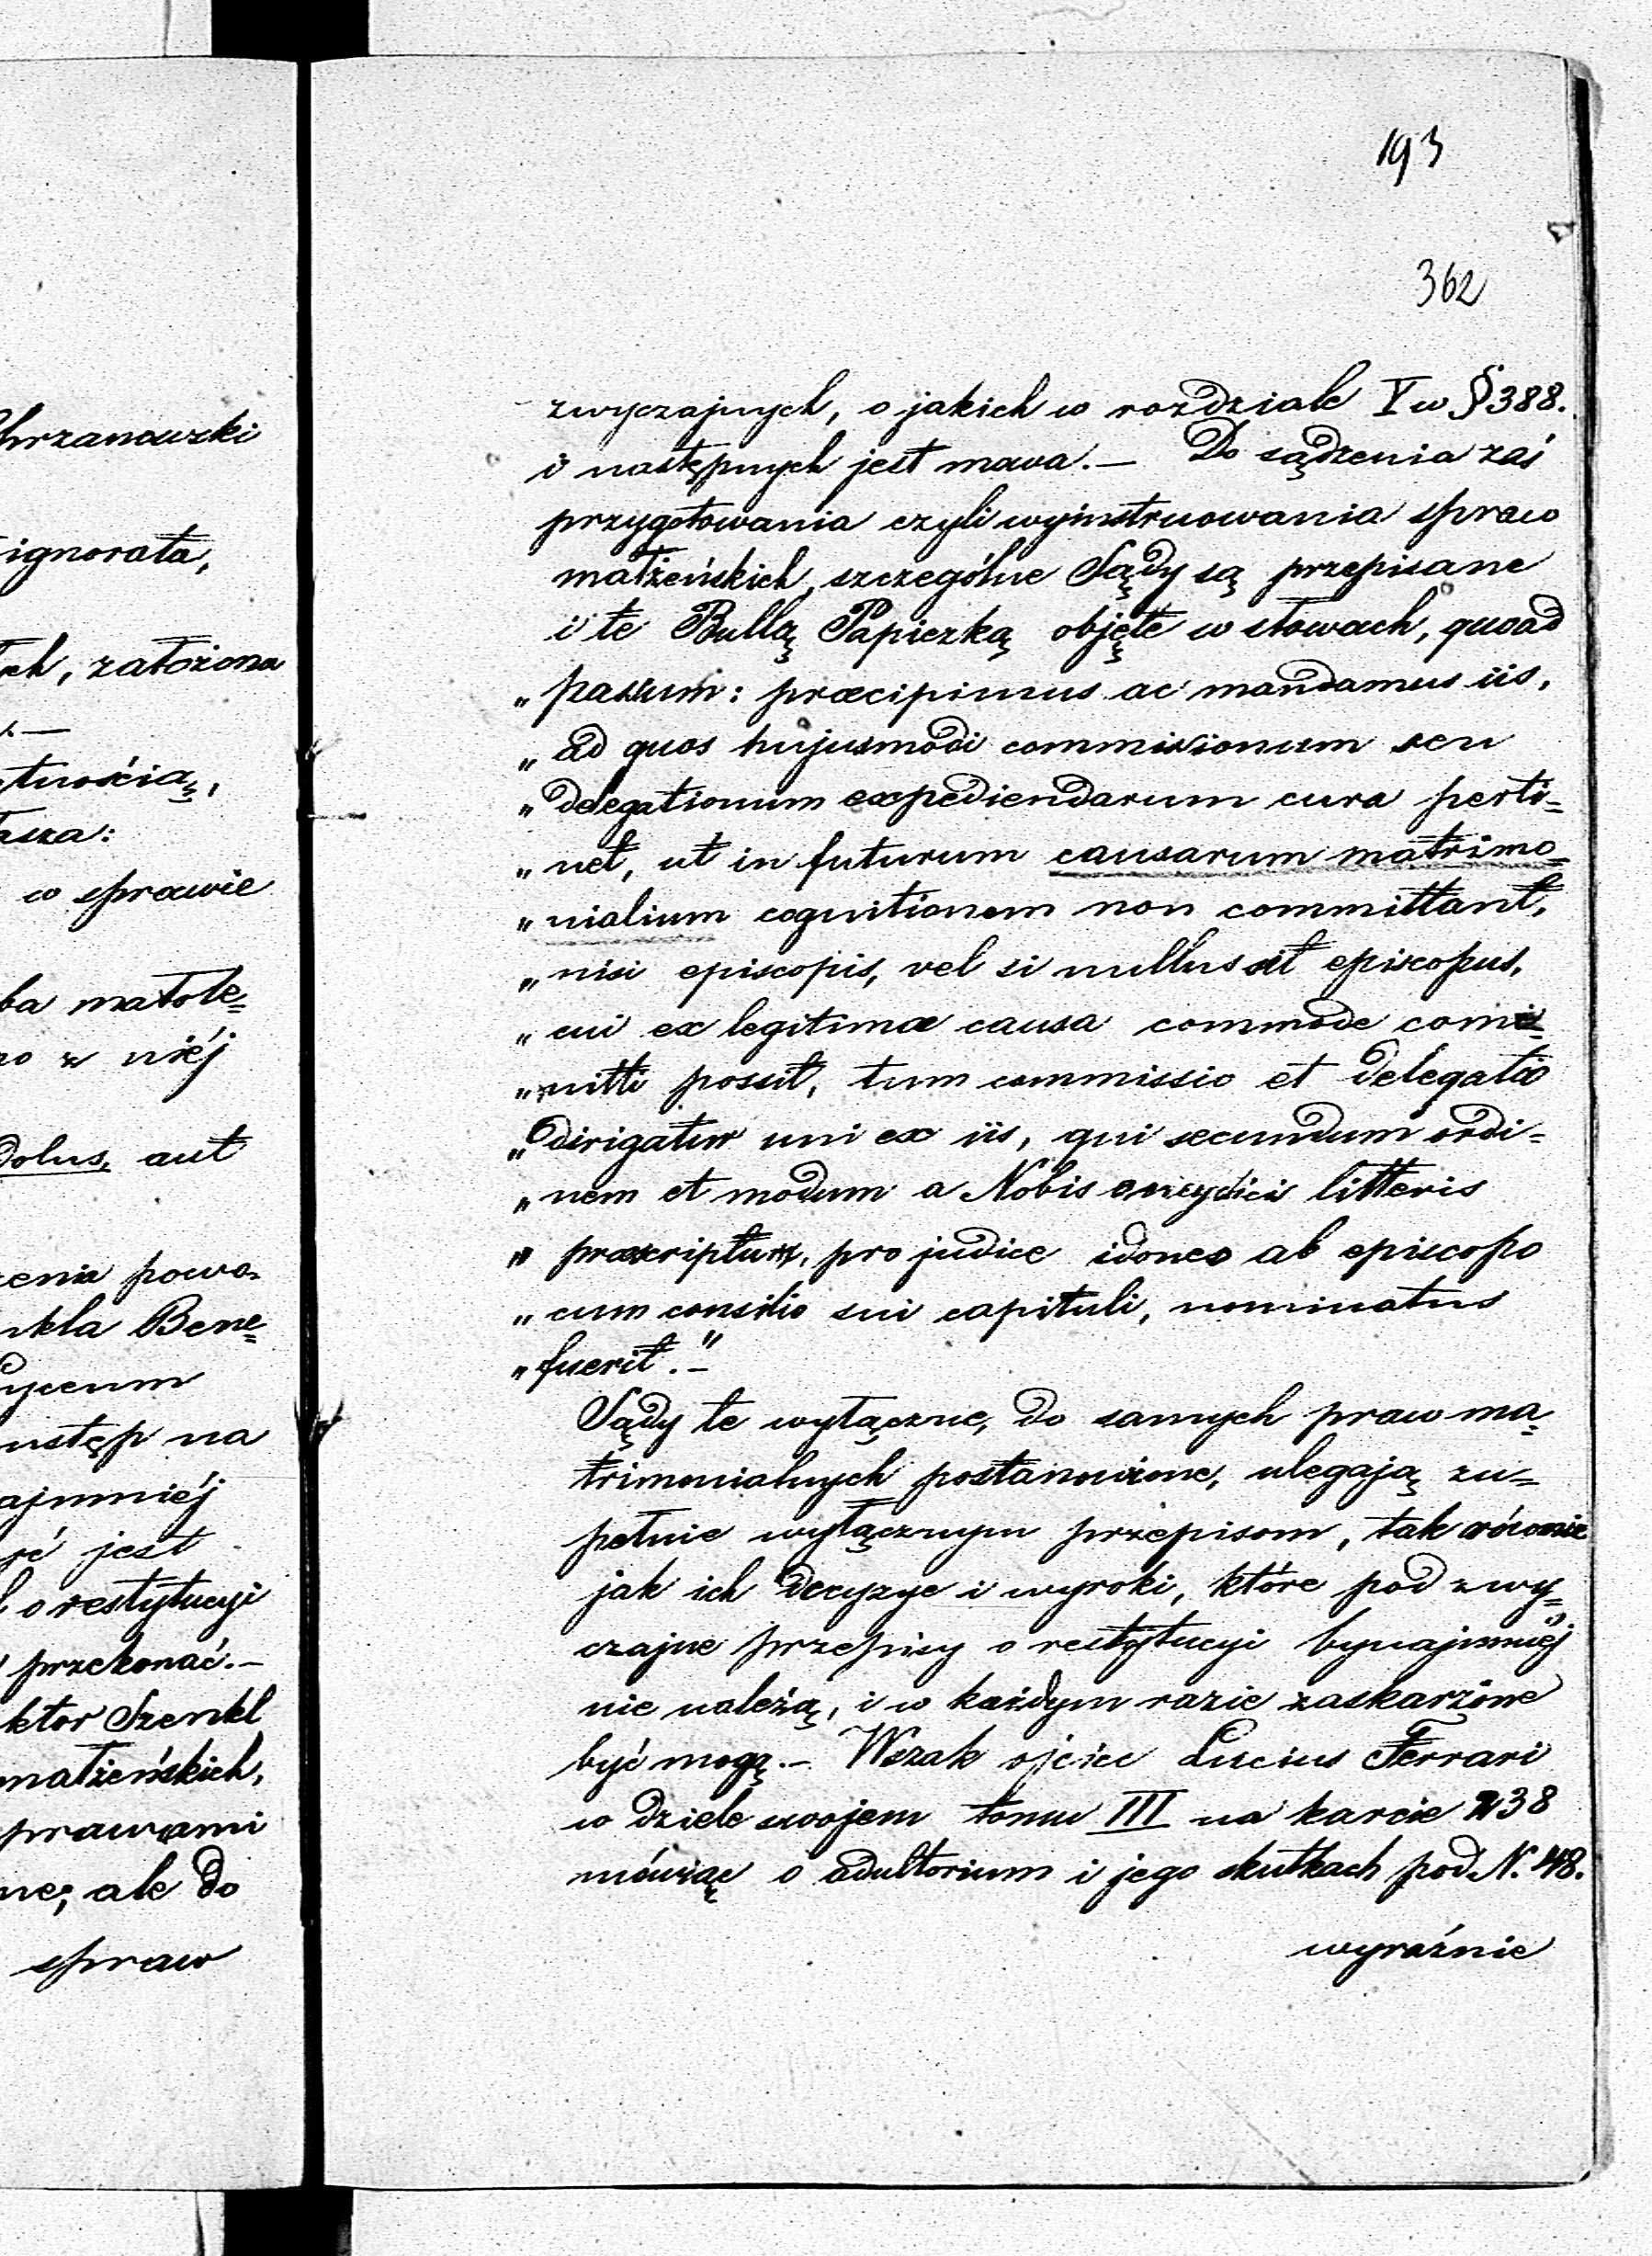 hrzanowski
ignorata,
ch, założona
tnością,
asza:
w sprawie
ba małole=
w niéj
dolus, aut
zenia powo=
nkla Bene=
yceum
ustęp na
ajmniéj
jest
o restytucyi
przekonać.—
ktor Szenkl
małżeńskich,
sprawami
ne; ale do
spraw
193
362
zwyczajnych, o jakich w rozdziale V w § 388.
i następnych jest mowa.— Do sądzenia zaś
przygotowania czyli wyinstruowania spraw
małżeńskich, szczególne Sądy są przepisane
i te Bullą Papiezką objęte w słowach, quoad
„passum: præcipimus ac mandamus iis,
„ad quos hujusmodi commissionum seu
„delegationum expediendarum cura perti=
„net, ut in futurum causarum matrimo=
„nialium cognitionem non committant,
„nisi episcopis, vel si nullus sit episcopus,
„cui ex legitima causa commode com=
„mitti possit, tum commissio et delegatio
„dirigatur uni ex iis, qui secundum ordi=
„nem et modum a Nobis litteris
„præscriptum, pro judice idoneo ab episcopo
„cum consilio sui capituli, nominatus
„fuerit."—
Sądy te wyłączne, do samych praw ma=
trimonialnych postanowione, ulegają zu=
pełnie wyłącznym przepisom, tak równie
jak ich decyzye i wyroki, które pod zwy=
czajne przepisy o restytucyi bynajmniéj
nie należą, i w każdym razie zaskarżone
być mogą.— Wszak ojciec Lucius Ferrari
w dziele swojem tomu III na karcie 238
mówiąc o adultorium i jego skutkach pod N. 48.
wyraźnie